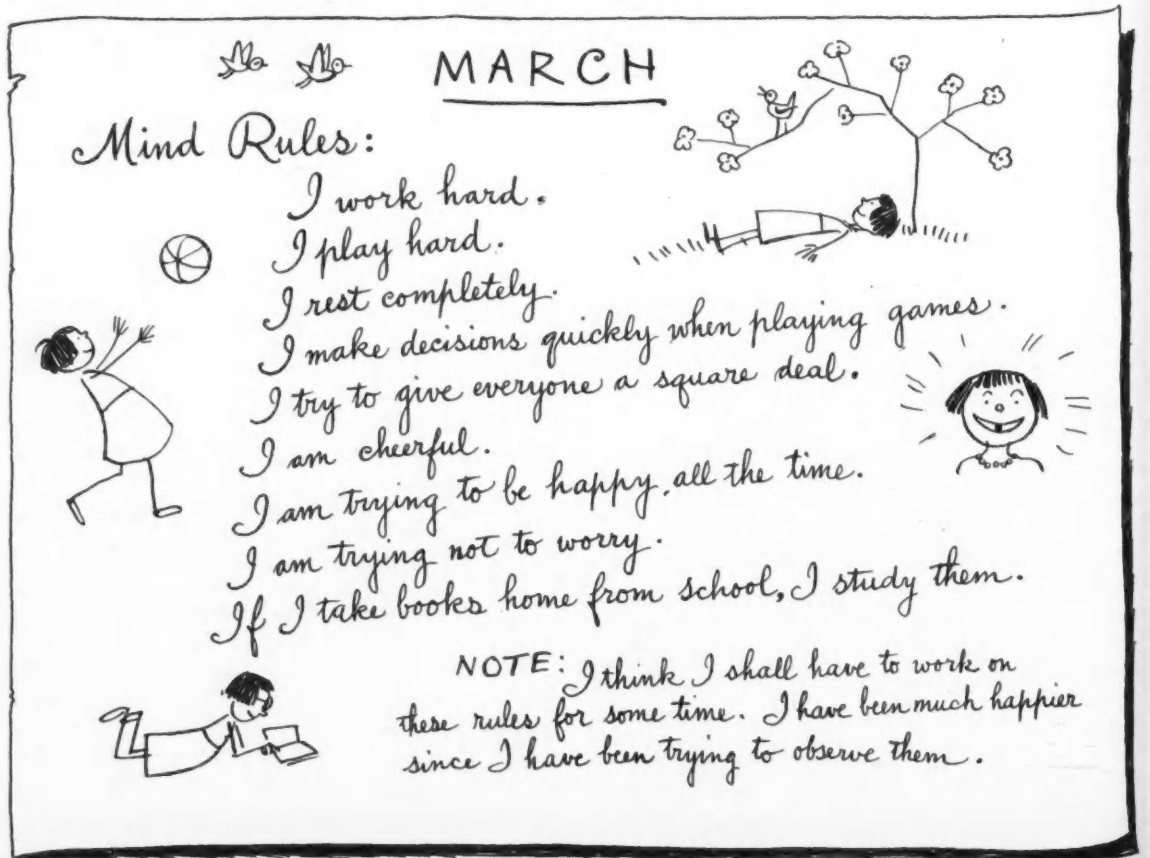 MARCH
Mind Rules:
I work hard.
I play hard.
I rest completely.
I make decisions quickly when playing games.
I try to give everyone a square deal.
I am cheerful.
I am trying to be happy, all the time.
I am trying not to worry.
If I take books home from school, I study them.
NOTE: I think I shall have to work on
these rules for some time. I have been much happier
since I have been trying to observe them.